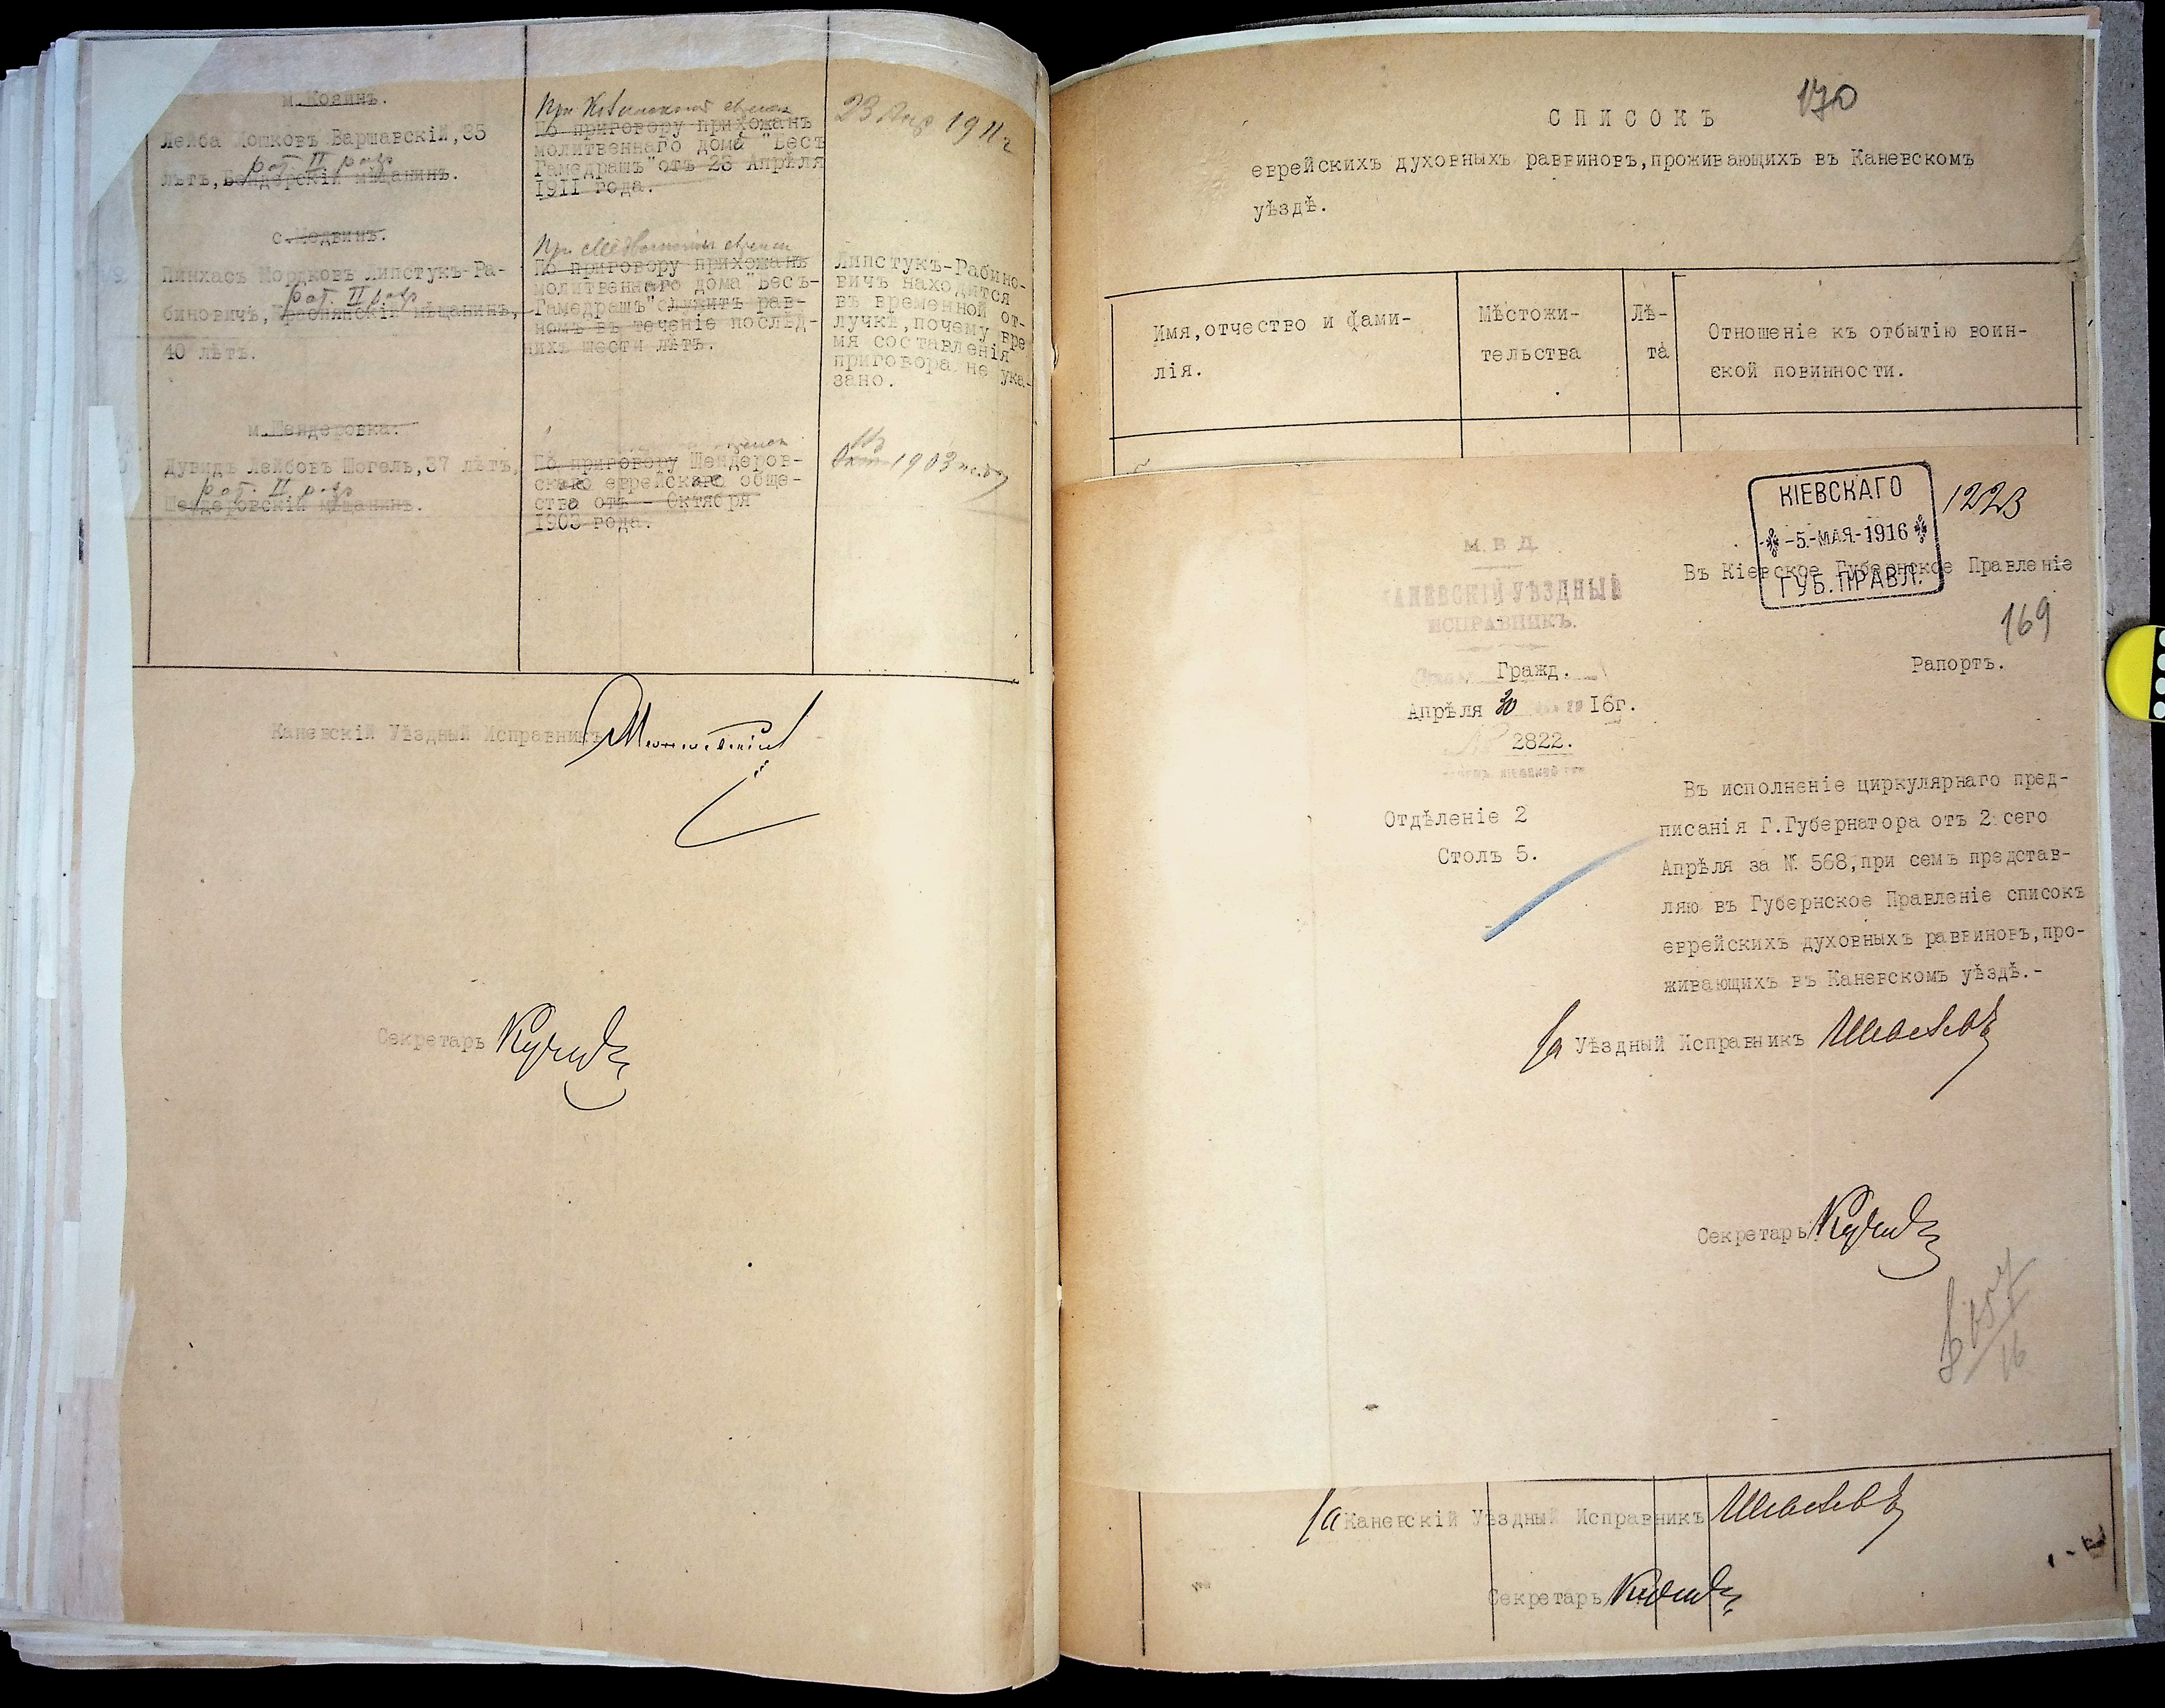 м. Козинъ.
Лейба Мошковъ Варшавскій, 35
рав. II разр
лѣтъ, Бендерскій мѣщанинъ.
При еврейск
По приговору прихожанъ
молитвеннаго дома "Бесъ
Гамедрашъ" отъ 23 Апрѣля
1911 года.
23 Апр 1911 г
с. Медвинъ.
Пинхасъ Мордковъ Липстукъ-Ра-
II разр
биновичъ, мѣщанинъ,
40 лѣтъ.
При
По приговору прихожанъ
молитвеннаго дома "Бесъ-
Гамедрашъ" служитъ рав-
номъ въ теченіе послѣд-
нихъ шести лѣтъ.
Липстукъ-Рабино-
вичъ находится
въ временной от-
лучкѣ, почему вре
мя составленія
приговора не ука-
зано.
м. Шендеровка.
Дувидъ Лейбовъ Шогель, 37 лѣтъ,
II разр
Шендеровскій мѣщанинъ.
По приговору Шендеров-
скаго еврейскаго обще-
ства отъ - Октября
1903 года.
1903
Каневскій Уѣздный Исправникъ
Секретарь
170
СПИСОКЪ
еврейскихъ духовныхъ раввиновъ, проживающихъ въ Каневскомъ
уѣздѣ.
Имя, отчество и фами-
лія.
Мѣстожи-
тельства
Лѣ-
та
Отношеніе къ отбытію воин-
ской повинности.
КІЕВСКАГО
-5-МАЯ-1916
ГУБ. ПРАВЛ.
1223
М. В. Д.
КАНЕВСКІЙ УѢЗДНЫЙ
ИСПРАВНИКЪ.
Гражд.
Апрѣля 30 16г.
№ 2822.
Отдѣленіе 2
Столъ 5.
Въ Кіевское Губернское Правленіе
169
Рапортъ.
Въ исполненіе циркулярнаго пред-
писанія Г. Губернатора отъ 2 сего
Апрѣля за № 568, при семъ представ-
ляю въ Губернское Правленіе списокъ
еврейскихъ духовныхъ раввиновъ, про-
живающихъ въ Каневскомъ уѣздѣ.-
За Уѣздный Исправникъ
Секретарь
16
За Каневскій Уѣздный Исправникъ
Секретарь